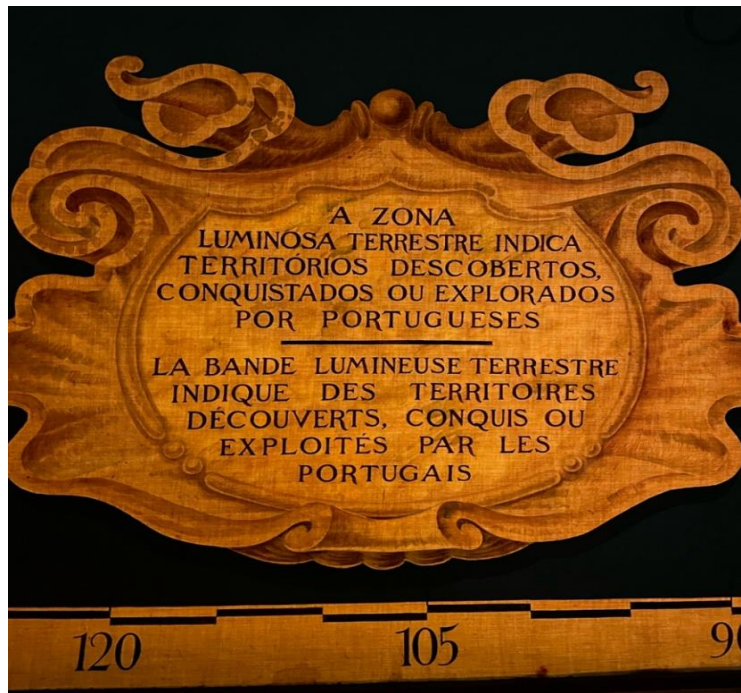 A ZONA
LUMINOSA TERRESTRE INDICA
TERRITÓRIOS DESCOBERTOS,
CONQUISTADOS OU EXPLORADOS
POR PORTUGUESES
LA BANDE LUMINEUSE TERRESTRE
INDIQUE DES TERRITOIRES
DÉCOUVERTS, CONQUIS OU
EXPLOITÉS PAR LES
PORTUGAIS
120 105